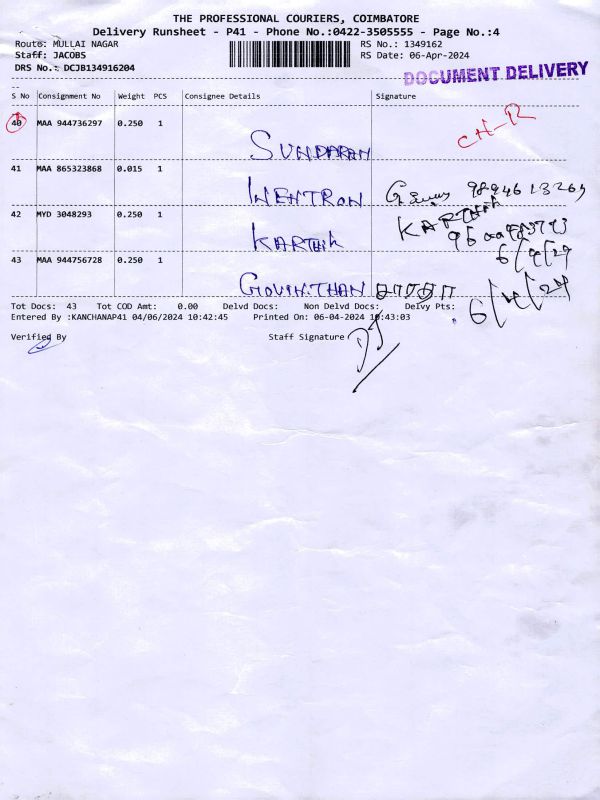 THE PROFESSIONAL COURIERS, COIMBATORE
Delivery Runsheet - P41 - Phone No.:0422-3505555 - Page No.:4
Route: MULLAI NAGAR
Staff: JACOBS
DRS No.: DCJB134916204
RS No.: 1349162
RS Date: 06-Apr-2024
DOCUMENT DELIVERY
S No Consignment No Weight PCS Consignee Details Signature
40 MAA 944736297 0.250 1 SUNDARAM CH-R
41 MAA 865323868 0.015 1 WENTRON
42 MYD 3048293 0.250 1 KARTHIK KARTHIK
6/4/24
43 MAA 944756728 0.250 1 GOVINTHAN சாரதா 6/4/24
Tot Docs: 43 Tot COD Amt: 0.00 Delvd Docs: Non Delvd Docs: Delvy Pts:
Entered By :KANCHANAP41 04/06/2024 10:42:45 Printed On: 06-04-2024 10:43:03
Verified By Staff Signature